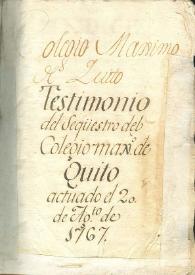 Colegio Maximo
de Quito
Testimonio
del Seqüestro del
Colegio maxº de
Quito
actuado el 20.
de Agto de
1767.